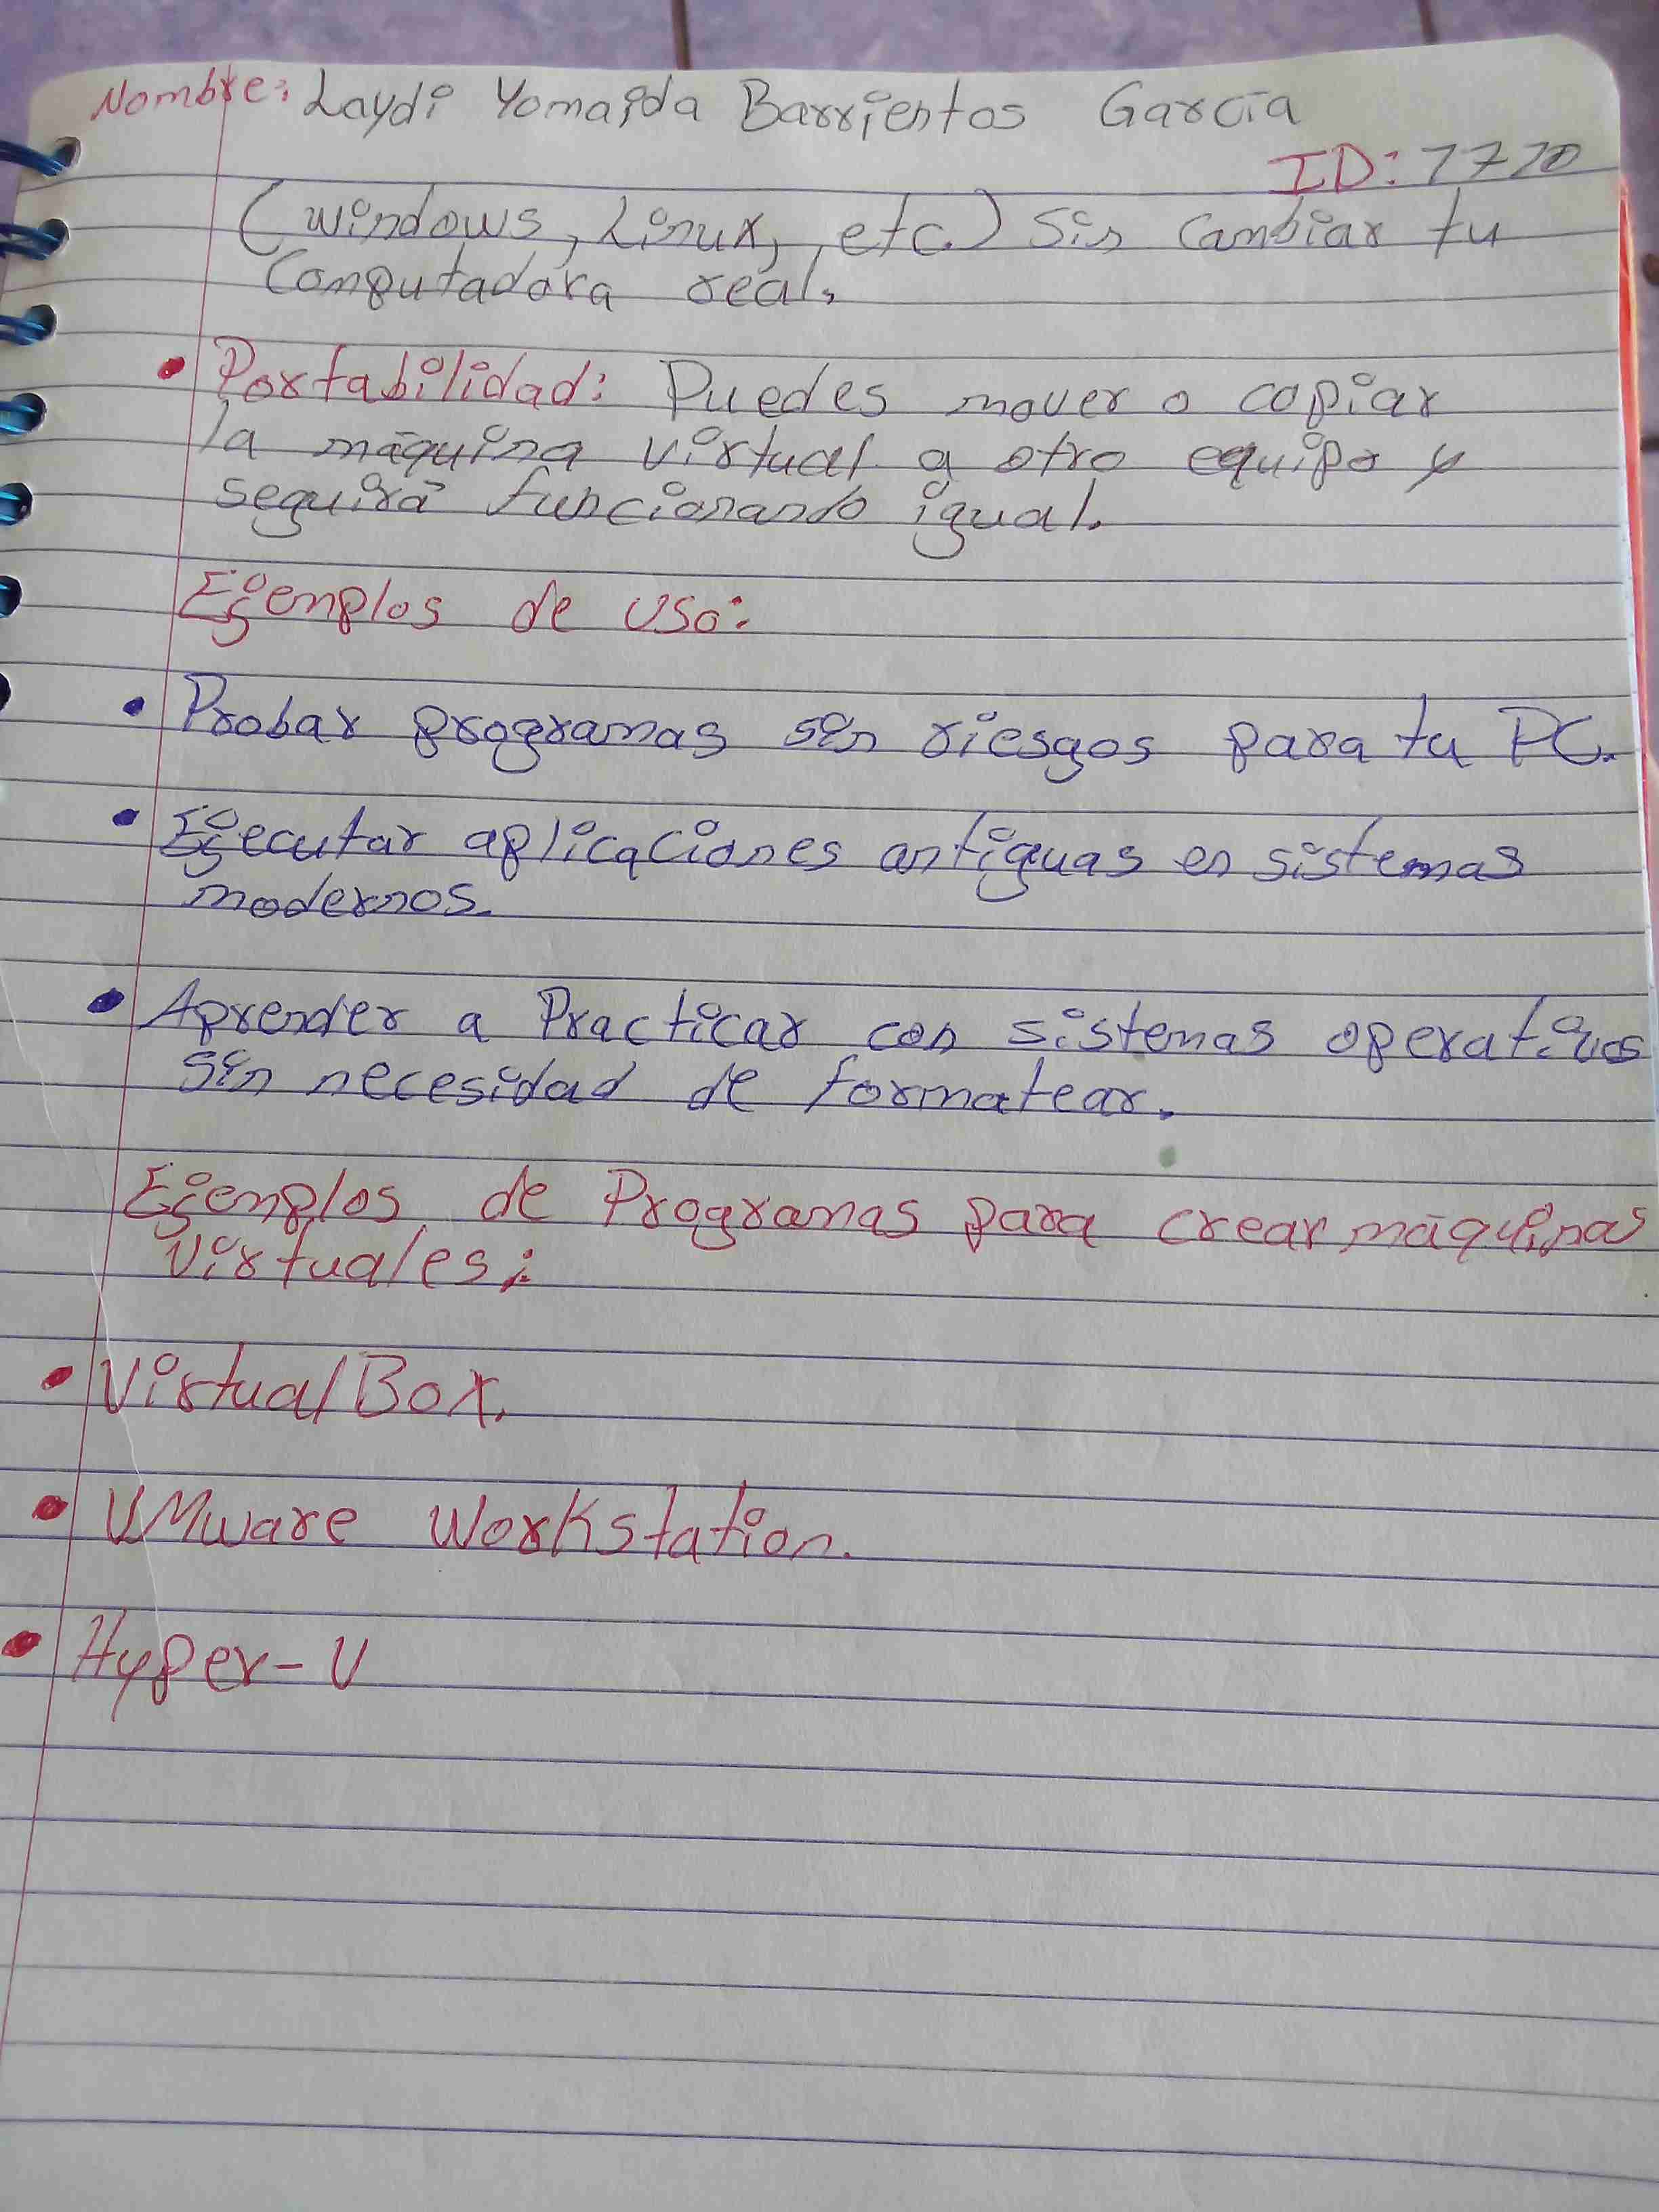 Nombre: Laydi Yomaida Barrientos García
ID: 7770
(windows, Linux, etc.) Sin cambiar tu
Computadora real.
• Portabilidad: Puedes mover o copiar
la máquina virtual a otro equipo y
seguirá funcionando igual.
Ejemplos de uso:
• Probar programas sin riesgos para tu PC.
• Ejecutar aplicaciones antiguas en sistemas
modernos.
• Aprender a Practicar con sistemas operativos
sin necesidad de formatear.
Ejemplos de Programas para crear máquinas
virtuales:
• VirtualBox.
• VMware Workstation.
• Hyper-V